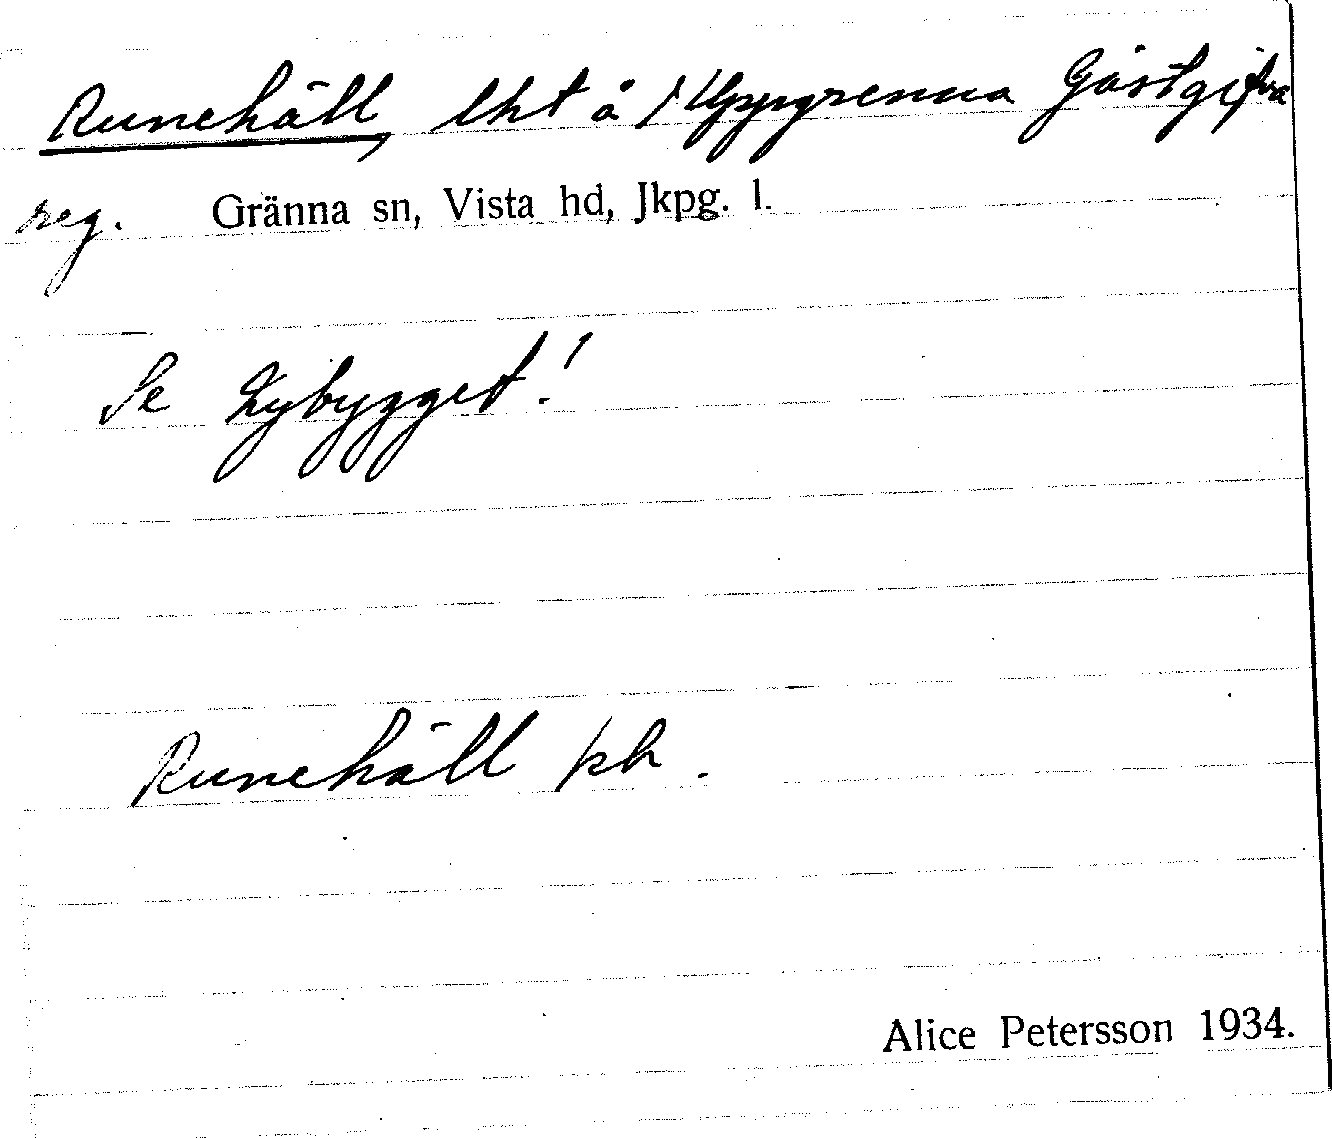 Runehäll, lht å 1 Uppgrenna Gästgifva
reg. Gränna sn, Vista hd, Jkpg. l.
Se Lybygget!
Runehäll kh.
Alice Petersson 1934.